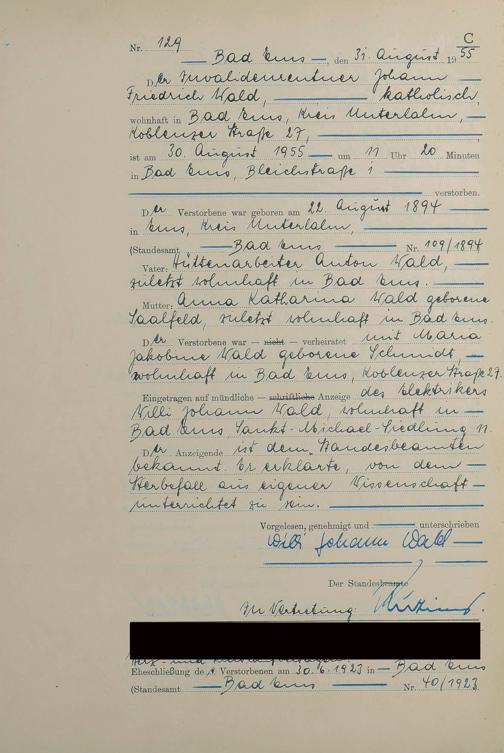 C
Nr. 129
Bad Ems, den 31. August 1955
Der Invalidenrentner Johann
Friedrich Wald, katholisch,
wohnhaft in Bad Ems, Kreis Unterlahn,
Koblenzer Straße 27,
ist am 30. August 1955 um 11 Uhr 20 Minuten
in Bad Ems, Bleichstraße 1
verstorben.
Der Verstorbene war geboren am 22. August 1894
in Ems, Kreis Unterlahn,
(Standesamt Bad Ems Nr. 109/1894
Vater: Hüttenarbeiter Anton Wald,
zuletzt wohnhaft in Bad Ems.
Mutter: Anna Katharina Wald geborene
Saalfeld, zuletzt wohnhaft in Bad Ems.
Der Verstorbene war — nicht — verheiratet mit Maria
Jakobine Wald geborene Schmidt,
wohnhaft in Bad Ems, Koblenzer Straße 27.
Eingetragen auf mündliche — schriftliche Anzeige des Elektrikers
Willi Johann Wald, wohnhaft in
Bad Ems, Sankt-Michael-Siedlung 11.
Der Anzeigende ist dem Standesbeamten
bekannt. Er erklärte, von dem
Sterbefall aus eigener Wissenschaft
unterrichtet zu sein.
Vorgelesen, genehmigt und unterschrieben
Willi Johann Wald
Der Standesbeamte
In Vertretung:
Herz- und
Eheschließung des Verstorbenen am 30.6.1923 in Bad Ems
(Standesamt Bad Ems Nr. 40/1923.